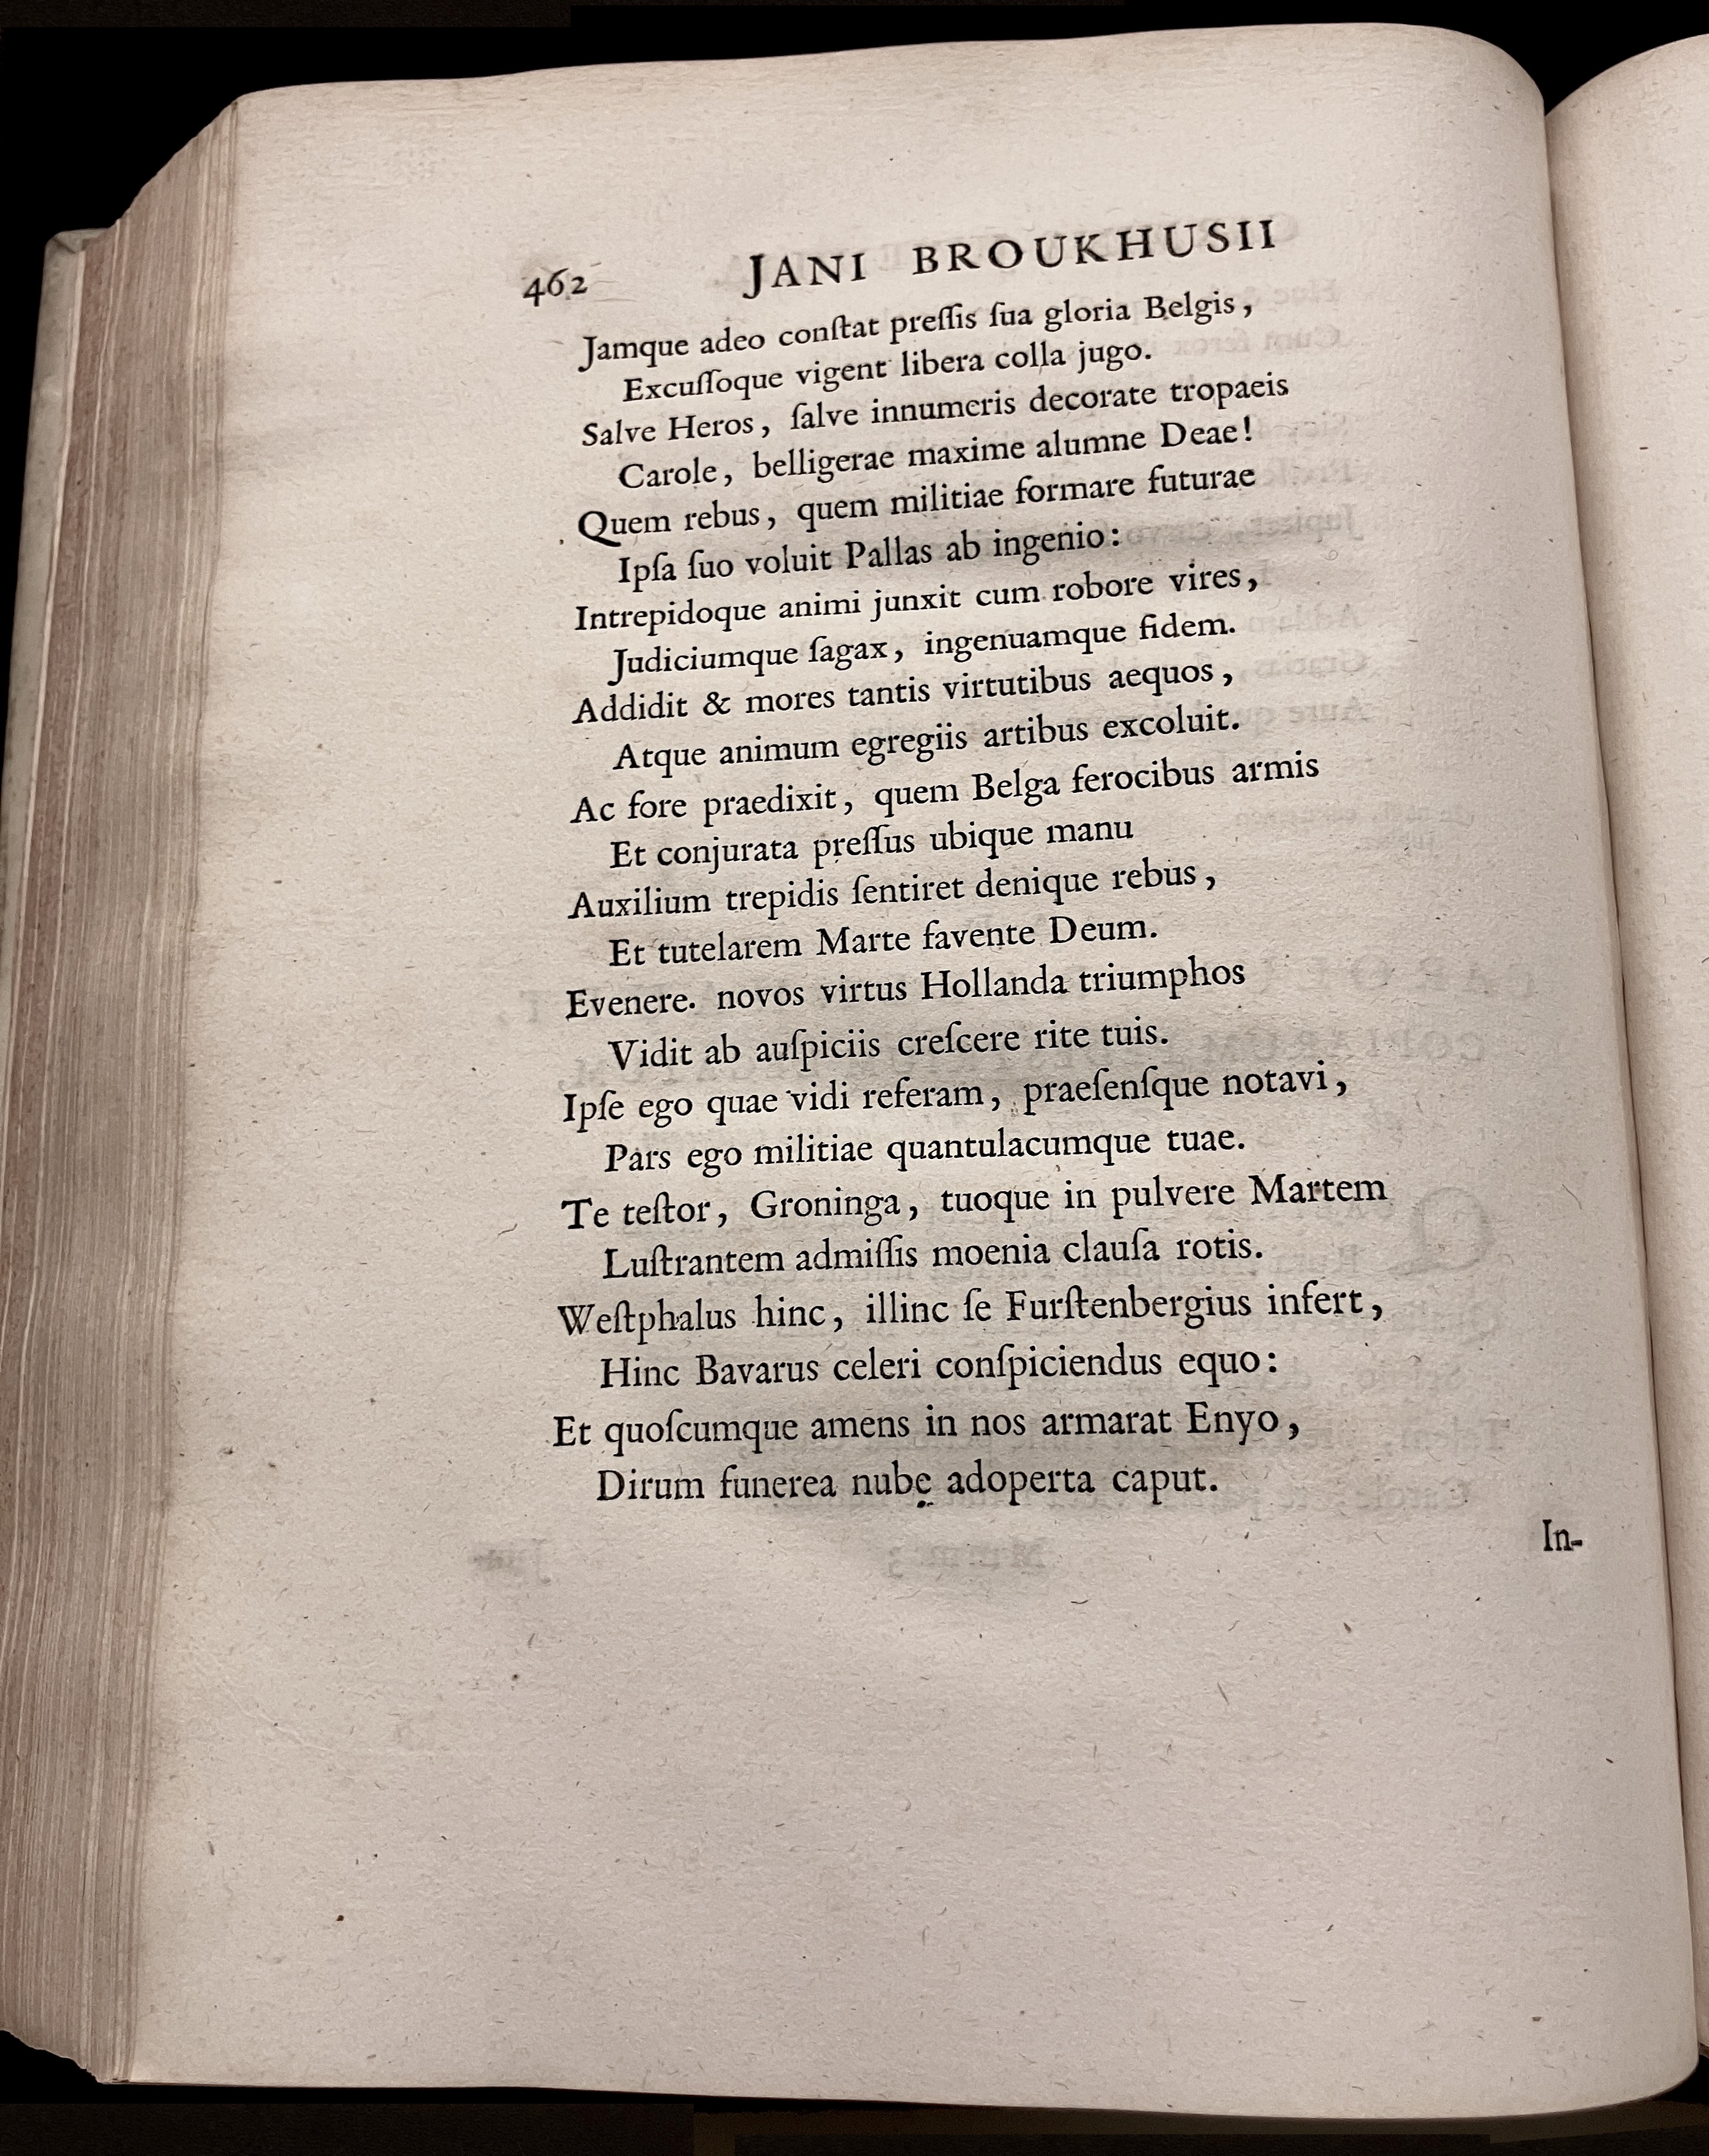 462 JANI BROUKHUSII
Jamque adeo conſtat preſſis ſua gloria Belgis,
Excuſſoque vigent libera colla jugo.
Salve Heros, ſalve innumeris decorate tropaeis
Carole, belligerae maxime alumne Deae!
Quem rebus, quem militiae formare futurae
Ipſa ſuo voluit Pallas ab ingenio:
Intrepidoque animi junxit cum robore vires,
Judiciumque ſagax, ingenuamque fidem.
Addidit & mores tantis virtutibus aequos,
Atque animum egregiis artibus excoluit.
Ac fore praedixit, quem Belga ferocibus armis
Et conjurata preſſus ubique manu
Auxilium trepidis ſentiret denique rebus,
Et tutelarem Marte favente Deum.
Evenere. novos virtus Hollanda triumphos
Vidit ab auſpiciis creſcere rite tuis.
Ipſe ego quae vidi referam, praeſenſque notavi,
Pars ego militiae quantulacumque tuae.
Te teſtor, Groninga, tuoque in pulvere Martem
Luſtrantem admiſſis moenia clauſa rotis.
Weſtphalus hinc, illinc ſe Furſtenbergius infert,
Hinc Bavarus celeri conſpiciendus equo:
Et quoſcumque amens in nos armarat Enyo,
Dirum funerea nube adoperta caput.
In-